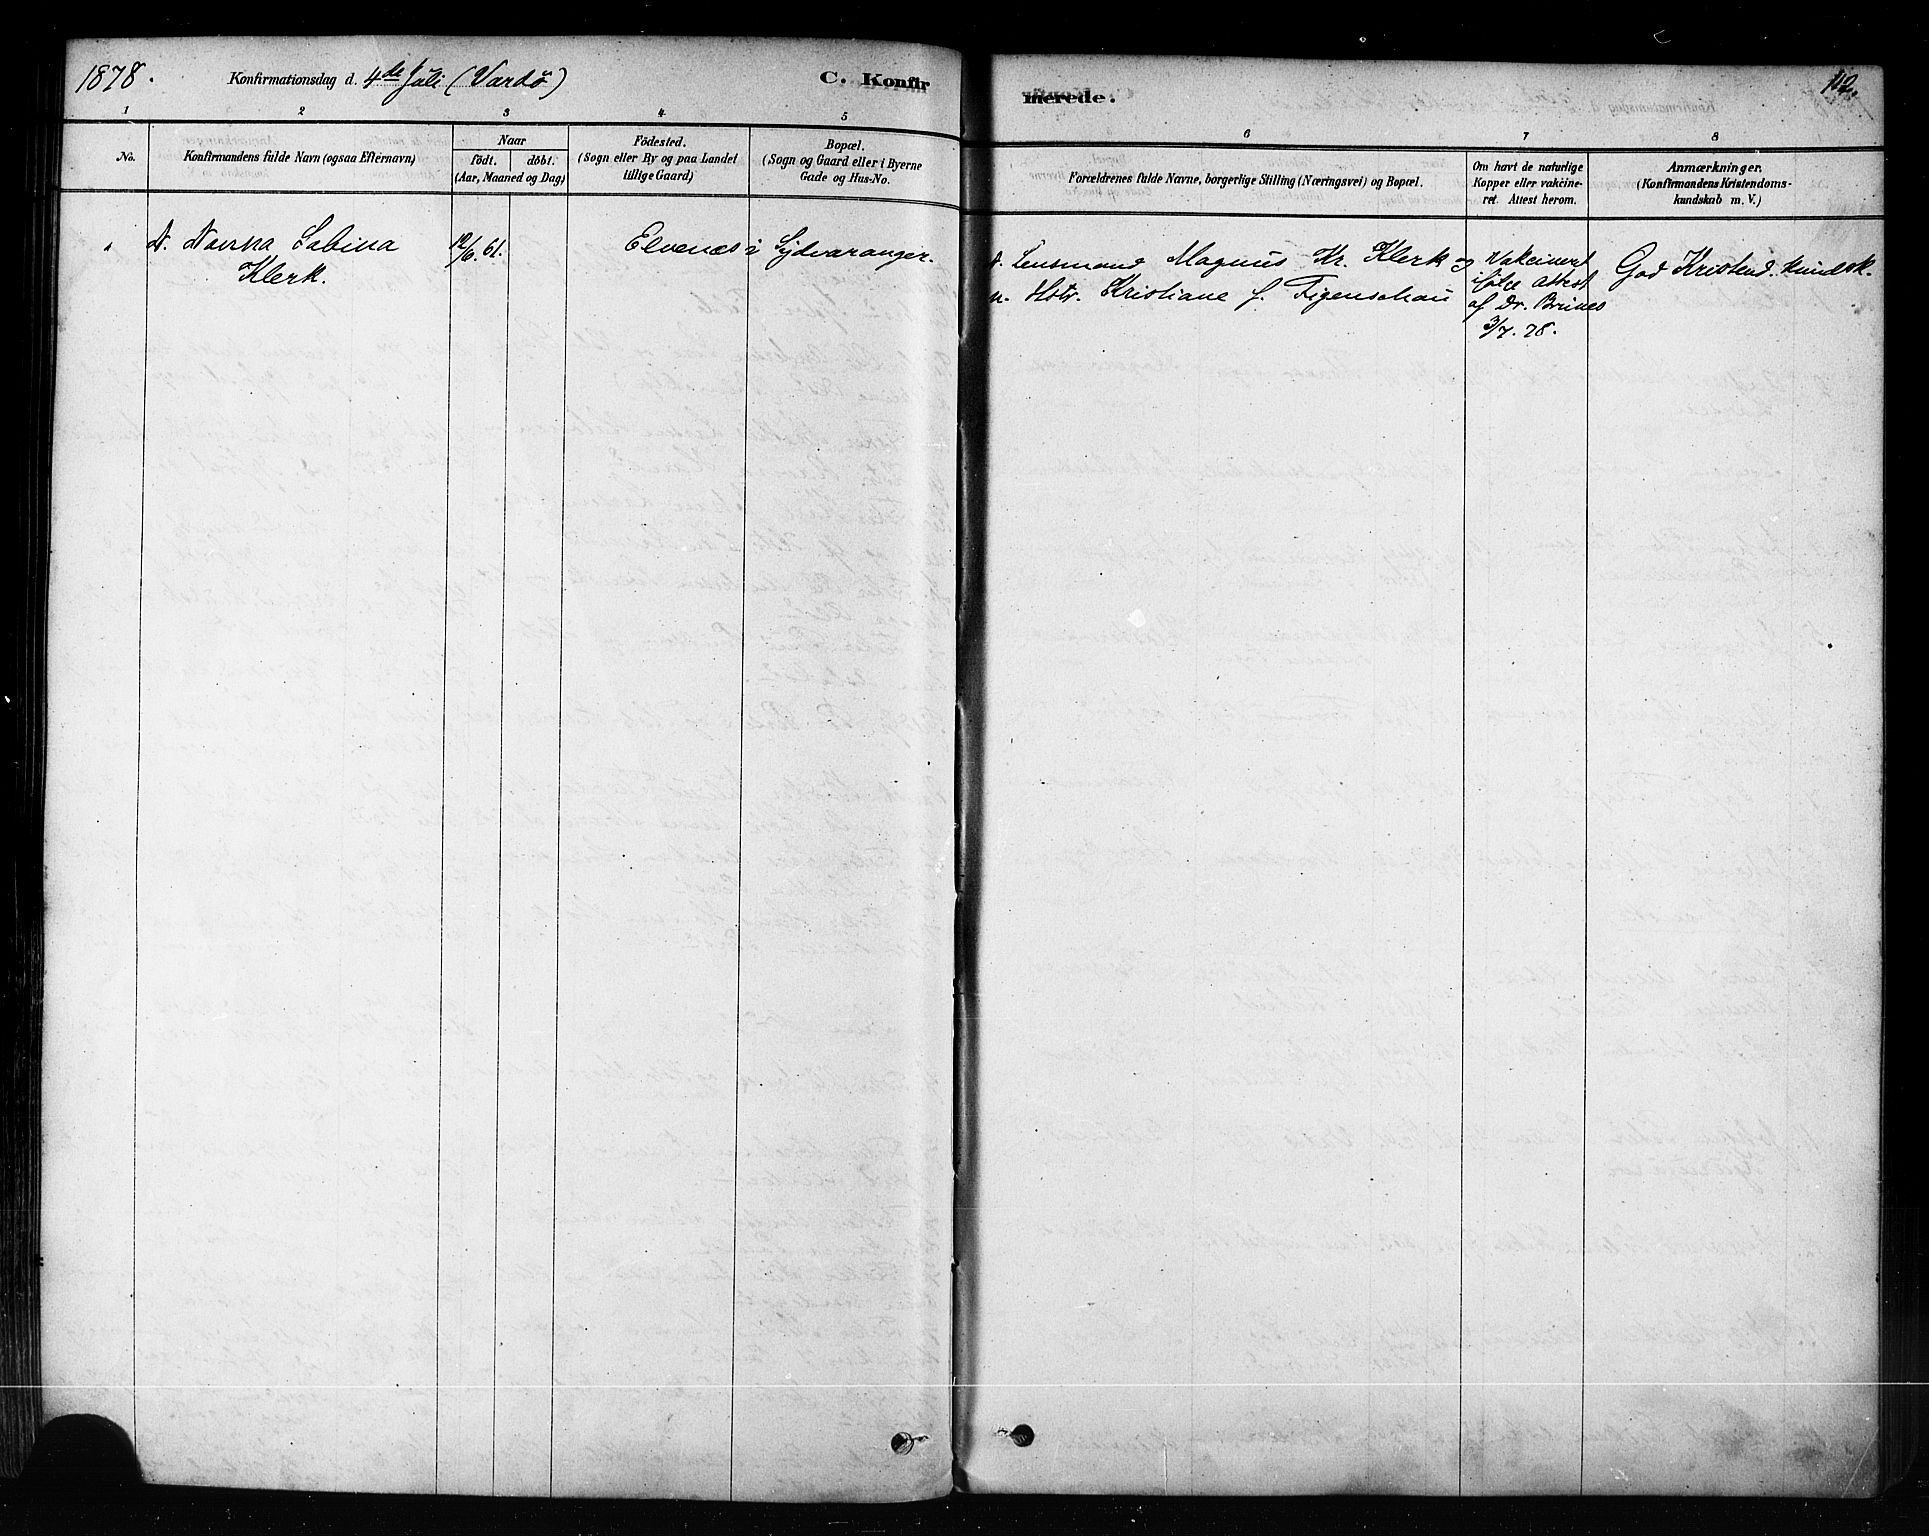 1878. Konfirmationsdag d. 4de Juli (Vardö) C. Konfir
merede. 112.
1 2 3 4 5
6 7 8
No. Konfirmandens fulde Navn (ogsaa Efternavn) Naar födt. döbt. (Aar, Maaned og Dag)
Födested.
(Sogn eller By og paa Landet
tillige Gaard)
Bopæl.
(Sogn og Gaard eller i Byerne
Gade og Hus-No.
Forældrenes fulde Navne, borgerlige Stilling (Næringsvei) og Bopæl.
Om havt de naturlige
Kopper eller vakcine-
ret. Attest herom.
Anmærkninger.
(Konfirmandens Kristendoms-
kundskab m. V.)
N. Sabina
Klerk.
12/6. 61.
Elvenæs i Sydvaranger.
N. Lensmand Magnus Kr. Klerk og
n. Hstr. Kristiane f. Figenschau
Vakcinert
ifølge Attest
af Dr.
3/7. 78.
God Kristend. kundsk.